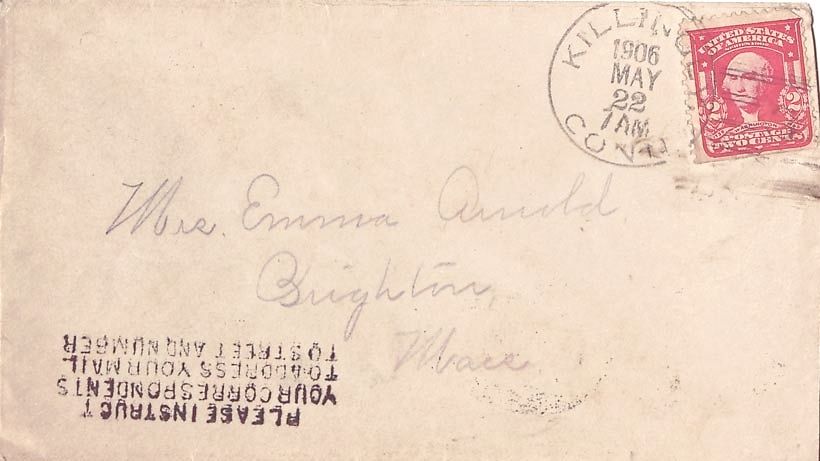 KILLING
1906
MAY
22
7AM
CONN
UNITED STATES
OF AMERICA
2 2
WASHINGTON
POSTAGE
TWO CENTS
Mrs. Emma Arnold
Brighton
Mass
PLEASE INSTRUCT
YOUR CORRESPONDENTS
TO ADDRESS YOUR MAIL
TO STREET AND NUMBER